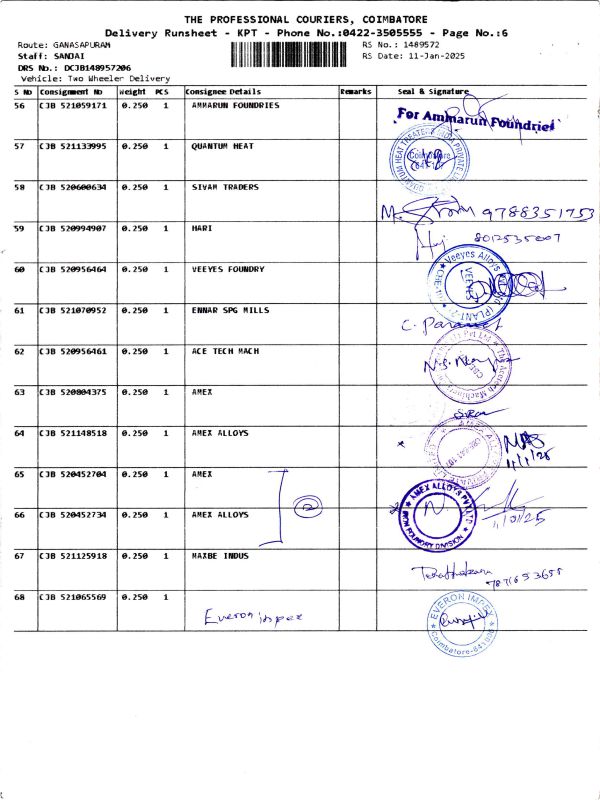 THE PROFESSIONAL COURIERS, COIMBATORE
Delivery Runsheet - KPT - Phone No.:0422-3505555 - Page No.:6
Route: GANASAPURAM
RS No.: 1489572
Staff: SANJAI
RS Date: 11-Jan-2025
DRS No.: DCJB148957206
Vehicle: Two Wheeler Delivery
S No Consignment No Weight PCS Consignee Details Remarks Seal & Signature
56 CJB 521059171 0.250 1 AMMARUN FOUNDRIES
For Ammarun Foundries
57 CJB 521133995 0.250 1 QUANTUM HEAT
Coimbatore
58 CJB 520600634 0.250 1 SIVAM TRADERS
9788351753
59 CJB 520994907 0.250 1 HARI
8012535007
60 CJB 520956464 0.250 1 VEEYES FOUNDRY
Veeyes Alloys
VEEYES
61 CJB 521070952 0.250 1 ENNAR SPG MILLS
62 CJB 520956461 0.250 1 ACE TECH MACH
63 CJB 520804375 0.250 1 AMEX
64 CJB 521148518 0.250 1 AMEX ALLOYS
65 CJB 520452704 0.250 1 AMEX
2
66 CJB 520452734 0.250 1 AMEX ALLOYS
AMEX ALLOYS PVT LTD
IRON FOUNDRY DIVISION
67 CJB 521125918 0.250 1 MAXBE INDUS
7871653655
68 CJB 521065569 0.250 1
Everon impex
EVERON IMPEX
Coimbatore-641006